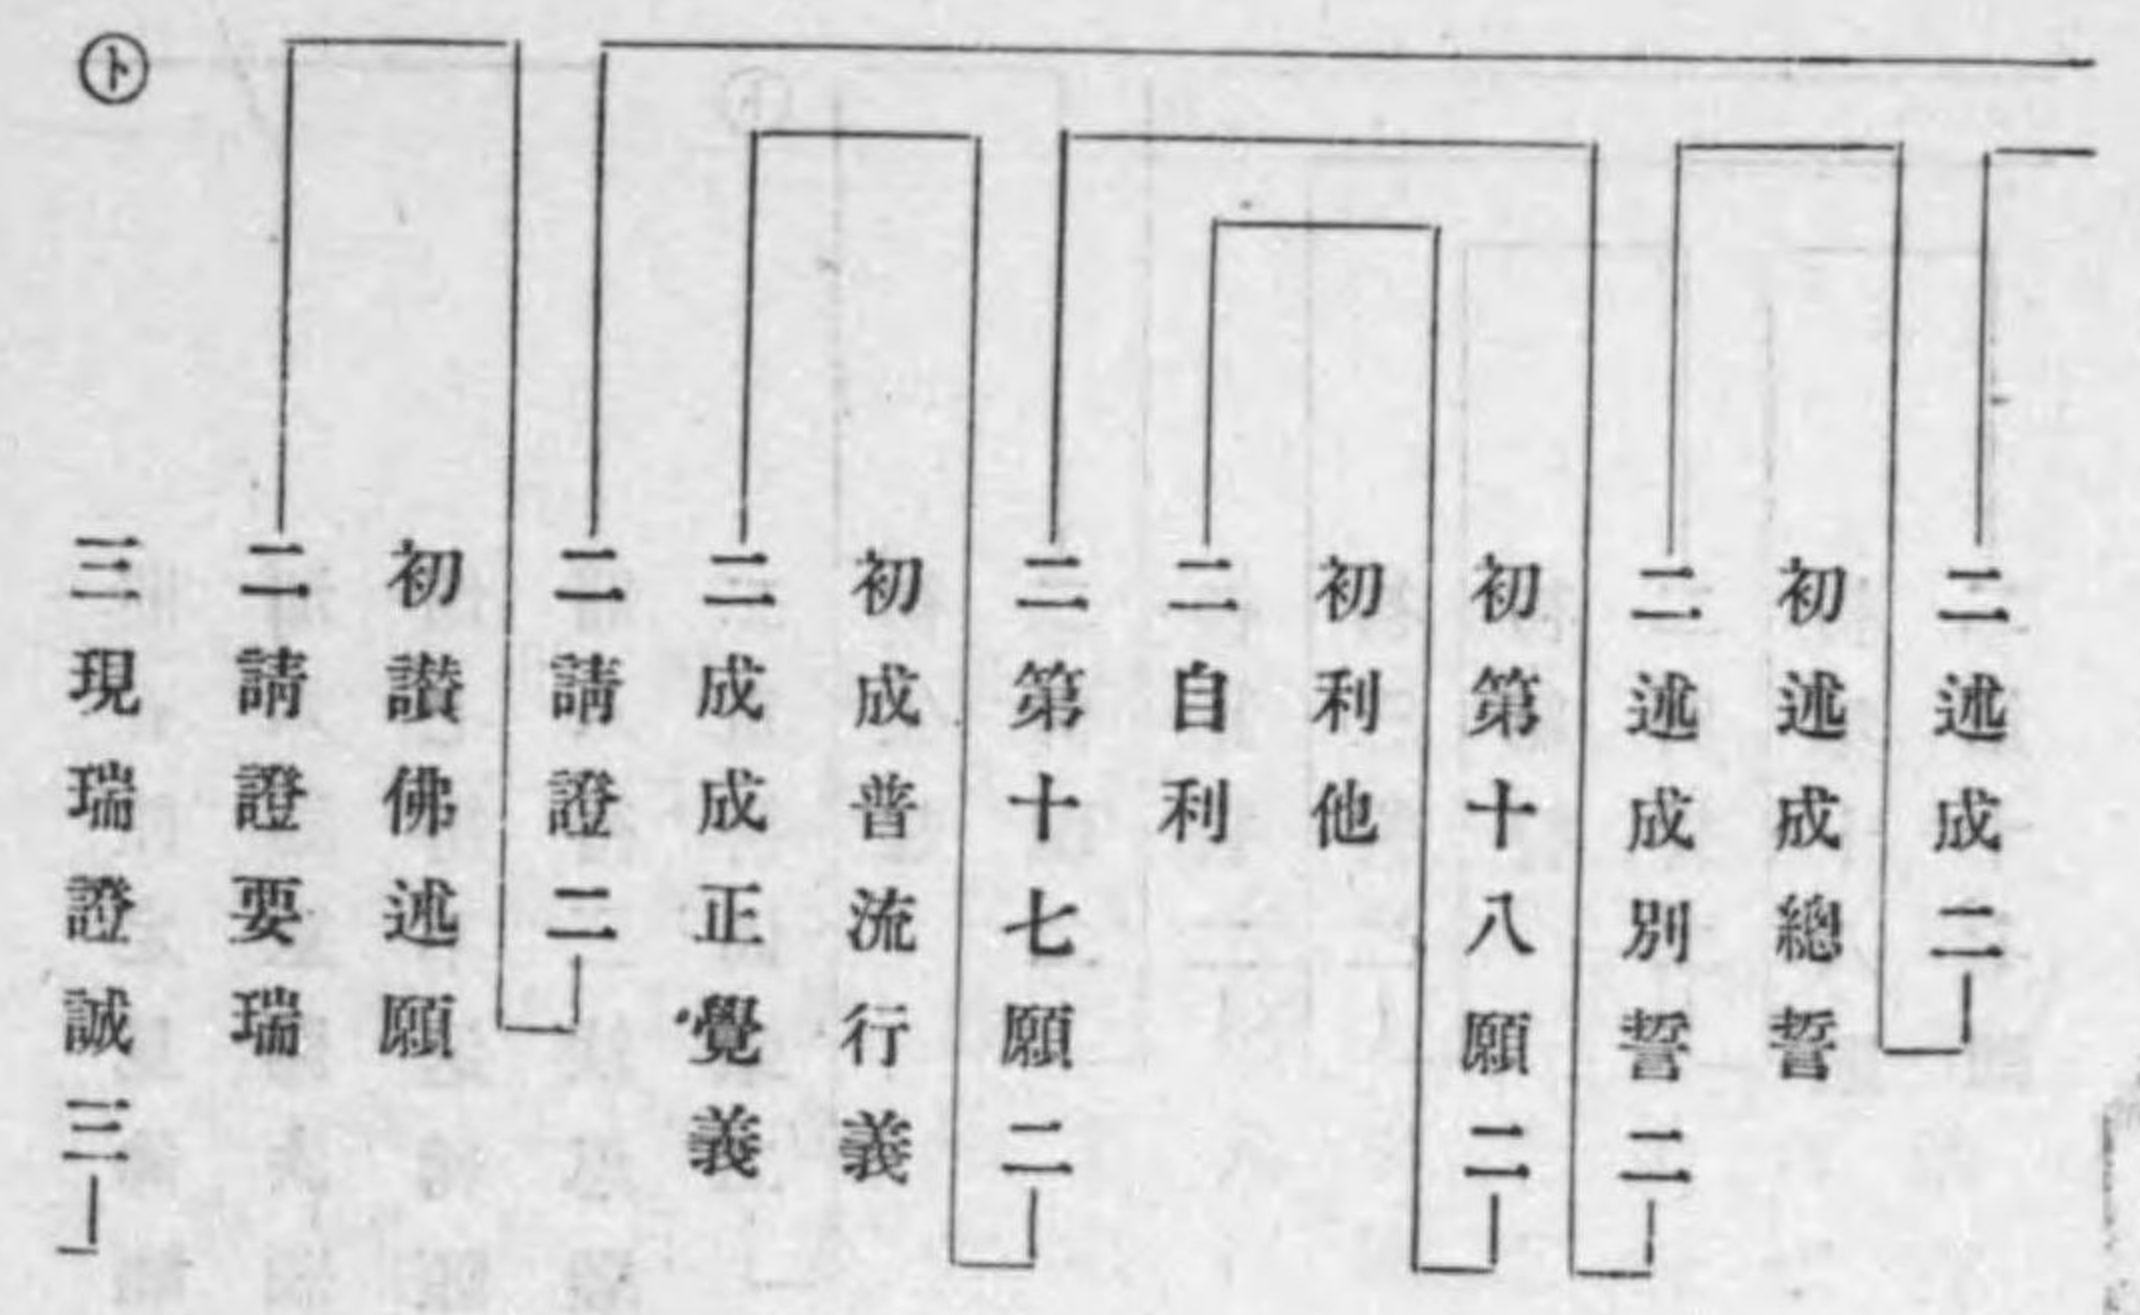 二述成二
初述成總誓
二述成別誓二
初第十八願二
初利他
二自利
二第十七願二
初成普流行義
二成成正覺義
二請證二
初讃佛述願
二請證要瑞
三現瑞證誠三
㋣